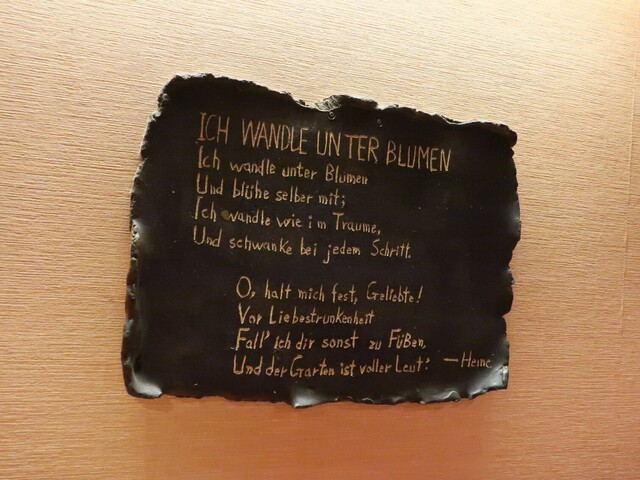 ICH WANDLE UNTER BLUMEN
Ich wandle unter Blumen
Und blühe selber mit;
Ich wandle wie im Traume,
Und schwanke bei jedem Schritt.
O, halt mich fest, Geliebte!
Vor Liebestrunkenheit
Fall' ich dir sonst zu Füßen,
Und der Garten ist voller Leut'. —Heine